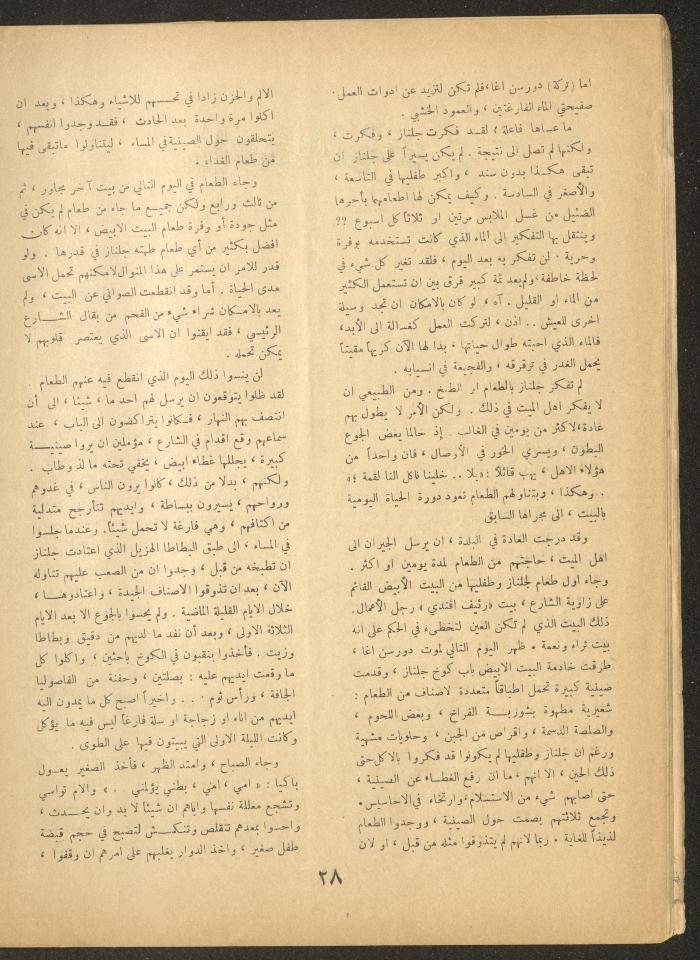 اما (تركة) دورسن اغا، فلم تكن لتزيد عن ادوات العمل.
صفيحتي الماء الفارغتين ، والعمود الخشبي .
ما عساها فاعلة ؛ لقد فكرت جلناز ، وفكرت ،
ولكنها لم تصل الى نتيجة . لم يكن يسيراً على جلناز ان
تبقى هكذا بدون سند ، واكبر طفليها في التاسعة ،
والأصغر في السادسة . وكيف يمكن لها اطعامهما بأجرها
الضئيل من غسل الملابس مرتين او ثلاثاً كل اسبوع ؟؟
وينتقل بها التفكير الى الماء الذي كانت تستخدمه بوفرة
وحرية . لن تفكر به بعد اليوم ، فلقد تغير كل شيء في
لحظة خاطفة، ولم يعد ثمة كبير فرق بين ان تستعمل الكثير
من الماء او القليل . آه ، لو كان بالامكان ان تجد وسيلة
اخرى للعيش .. اذن ، لتركت العمل كغسالة الى الأبد،
فالماء الذي احبته طوال حياتها . بدا لها الآن كريهاً مقيتاً
يحمل الغدر في ترقرقه ، والفجيعة في انسيابه .
لم تفكر جلناز بالطعام او الطبخ . ومن الطبيعي ان
لا يفكر اهل الميت في ذلك . ولكن الأمر لا يطول بهم
عادة، لاكثر من يومين في الغالب . إذ حالما يعض الجوع
البطون ، ويسري الخور في الأوصال ، فان واحداً من
هؤلاء الاهل ، يهب قائلاً : «بلا .. خلينا فاكل النا لقمة ؛»
.. وهكذا ، وبتناولهم الطعام تعود دورة الحياة اليومية
بالبيت ، الى مجراها السابق
وقد درجت العادة في البلدة ، ان يرسل الجيران الى
اهل الميت ، حاجتهم من الطعام لمدة يومين او اكثر .
وجاء اول طعام لجلناز وطفليها من البيت الأبيض القائم
على زاوية الشارع ، بيت «رئيف افندي ، رجل الأعمال.
ذلك البيت الذي لم تكن العين لتخطىء في الحكم على انه
بيت ثراء ونعمة . ظهر اليوم التالي لموت دورسن اغا ،
طرقت خادمة البيت الابيض باب كوخ جلناز ، وقدمت
صينية كبيرة تحمل اطباقاً متعددة لاصناف من الطعام :
شعيرية مطهوة بشوربة الفراخ ، وبعض اللحوم ،
والصلصة الدسمة ، واقراص من الجبن ، وحلويات مشهية
ورغم ان جلناز وطفليها لم يكونوا قد فكروا بالاكل حتى
ذلك الحين ، الا انهم ، ما ان رفع الغطاء عن الصينية ،
حتى اصابهم شيء من الاستسلام، وارتخاء في الاحاسيس.
وتجمع ثلاثتهم بصمت حول الصينية ، ووجدوا الطعام
لذيذاً للغاية . ربما لانهم لم يتذوقوا مثله من قبل ، او لان
الالم والحزن زادا في تحسسهم للاشياء وهكذا ، وبعد ان
اكلوا مرة واحدة بعد الحادث ، فقد وجدوا انفسهم ،
يتحلقون حول الصينية في المساء ، ليتناولوا ما تبقى فيها
من طعام الغداء .
وجاء الطعام في اليوم التالي من بيت آخر مجاور ، ثم
من ثالث ورابع ولكن جميع ما جاء من طعام لم يكن في
مثل جودة أو وفرة طعام البيت الابيض ، الا انه كان
افضل بكثير من أي طعام طهته جلناز في قدرها . ولو
قدر للامر ان يستمر على هذا المنوال لامكنهم تحمل الاسى
مدى الحياة . أما وقد انقطعت الصواني عن البيت ، ولم
يعد بالامكان شراء شيء من الفحم من بقال الشارع
الرئيسي ، فقد ايقنوا ان الاسى الذي يعتصر قلوبهم لا
يمكن تحمله .
لن ينسوا ذلك اليوم الذي انقطع فيه عنهم الطعام
لقد ظلوا يتوقعون ان يرسل لهم احد ما ، شيئا ، الى أن
انتصف بهم النهار ، فكانوا يتراكضون الى الباب ، عند
سماعهم وقع اقدام في الشارع ، مؤملين ان يروا صينية
كبيرة ، يجللها غطاء ابيض ، يخفي تحته ما لذ وطاب .
ولكنهم ، بدلا من ذلك ، كانوا يرون الناس ، في غدوهم
ورواحهم ، يسيرون ببساطة ، وايديهم تتأرجح متدلية
من اكتافهم ، وهي فارغة لا تحمل شيئاً. وعندما جلسوا
في المساء ، الى طبق البطاطا الهزيل الذي اعتادت جلناز
ان تطبخه من قبل ، وجدوا ان من الصعب عليهم تناوله
الآن ، بعد ان تذوقوا الاصناف الجيدة ، واعتادوها ،
خلال الايام القليلة الماضية . ولم يحسوا بالجوع الا بعد الايام
الثلاثة الاولى ، وبعد أن نفد ما لديهم من دقيق وبطاطا
وزيت . فأخذوا ينقبون في الكوخ باحثين ، واكلوا كل
ما وقعت ايديهم عليه : بصلتين ، وحفنة من الفاصوليا
الجافة ، ورأس ثوم . . . واخيراً اصبح كل ما يمدون اليه
ايديهم من اناء او زجاجة او سلة فارغاً ليس فيه ما يؤكل
وكانت الليلة الاولى التي يبيتون فيها على الطوى .
وجاء الصباح ، وامتد الظهر ، فأخذ الصغير يعول
باكيا : « امي ، امي ، بطني يؤلمني . » والام تواسي
وتشجع معللة نفسها واياهم ان شيئاً لا بد وان يحدث ،
واحسوا بمعدهم تتقلص وتنكمش لتصبح في حجم قبضة
طفل صغير ، واخذ الدوار يغلبهم على امرهم ان وقفوا ،
٢٨